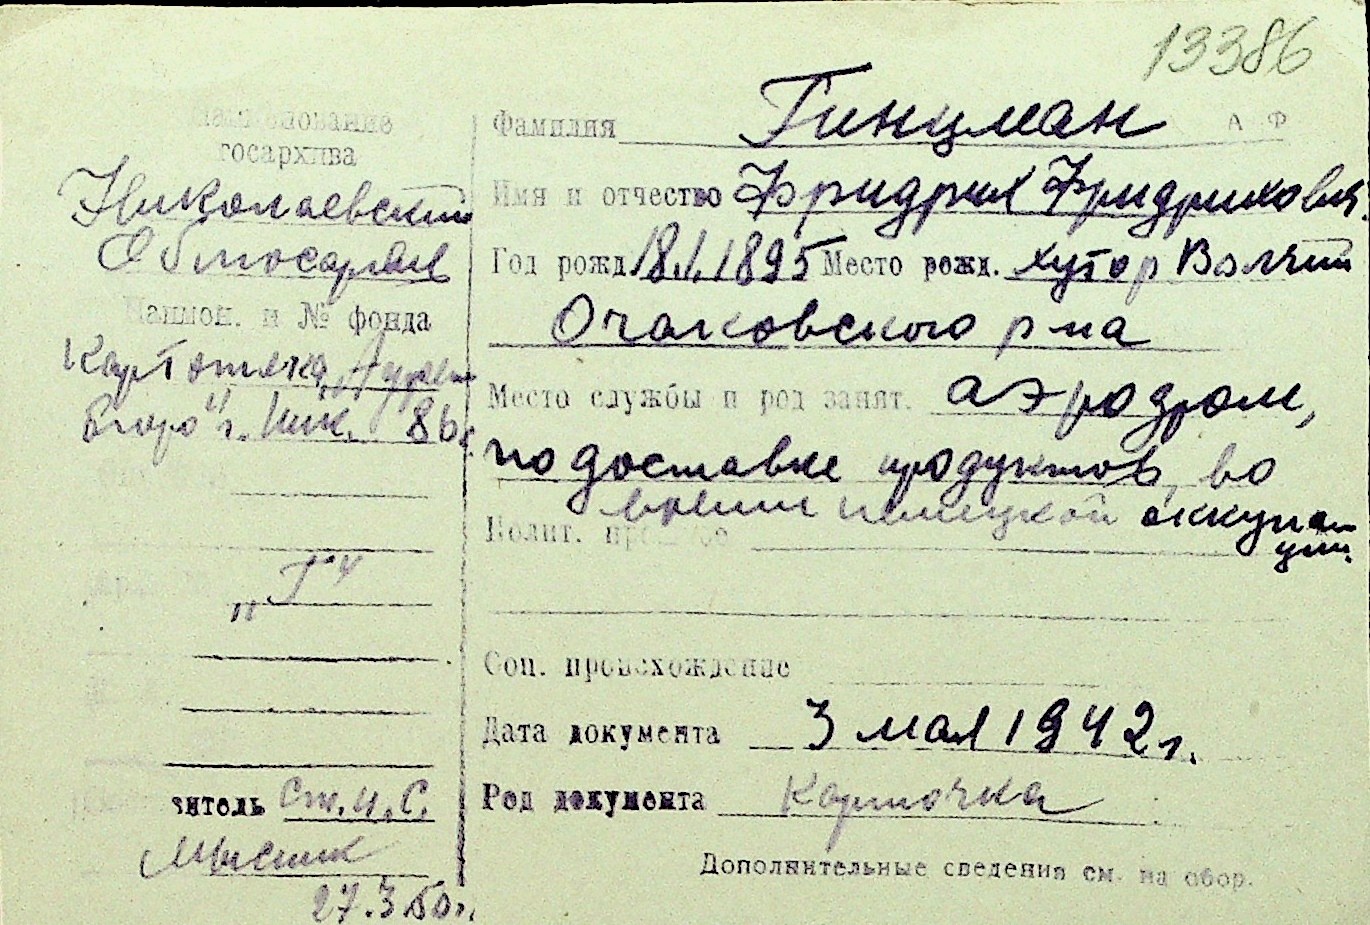 13386
Наименование
госархива
Николаевский
Облгосархив
Наимен. и № фонда
Картотека
бюро" г. Ник. 86
"Г"
Фамилия Гинцман
А Ф
Имя и отчество Фридрих Фридрихович
Год рожд. 18.1.1895 Место рожд. хутор Волчий
Очаковского р-на
Место службы и род занят. аэродром,
по доставке продуктов, во
время немецкой оккупа-
ции.
Полит.
Соц. происхождение
Дата документа 3 мая 1942 г.
Род документа Карточка
Дополнительные сведения см. на обор.
витель Ст. н. с.
Мысник
27.3.50 г.